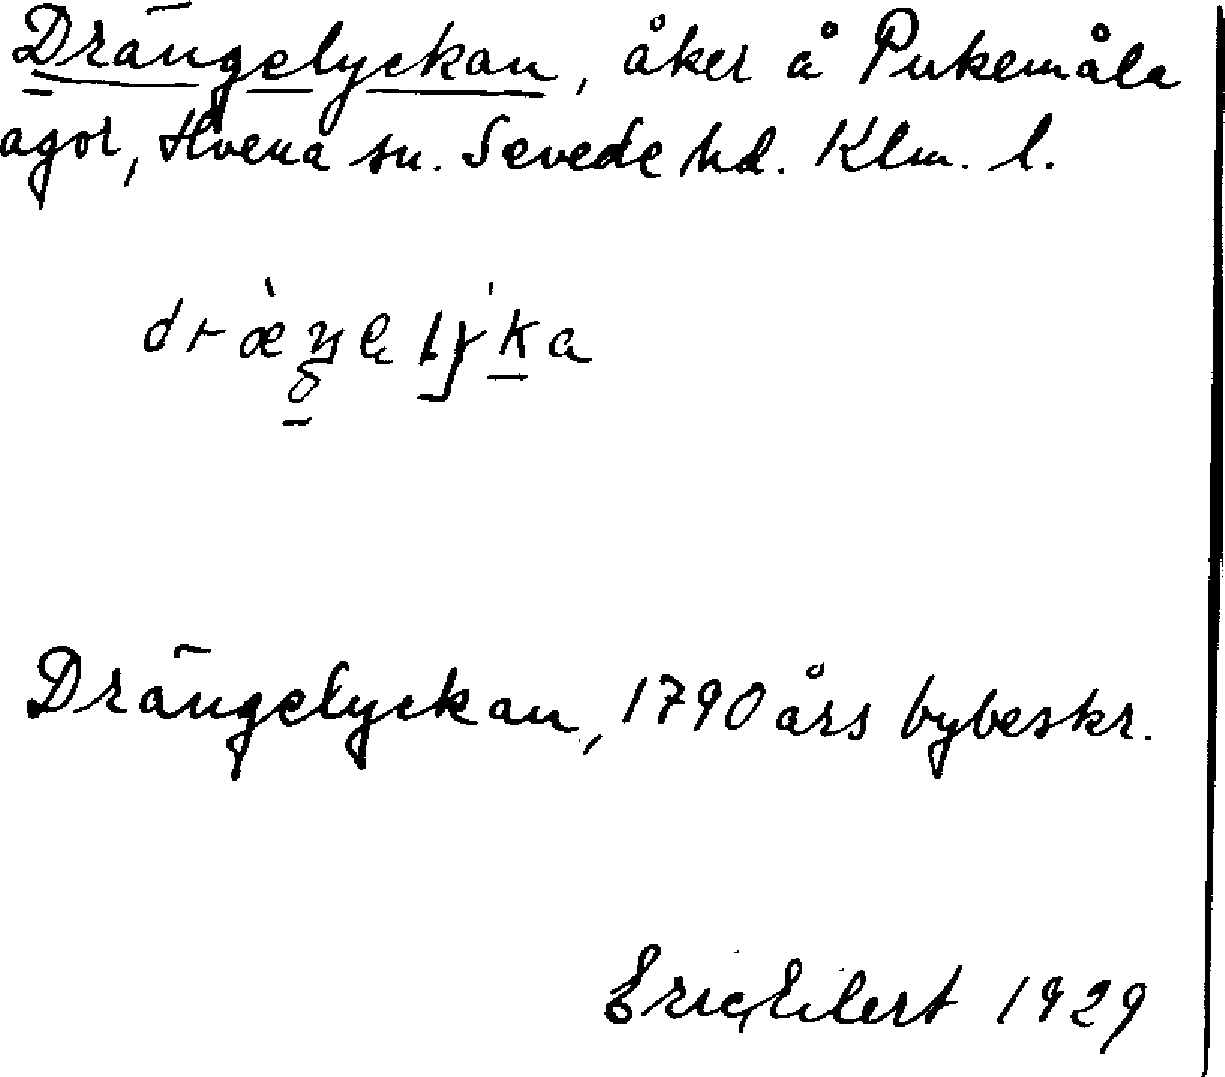 Drängelyckan, åker å Pukemåla
ägor, Hvena sn. Sevede hd. Klm. l.
Drängelyckan, 1790 års bybeskr.
Eric Eilert 1929